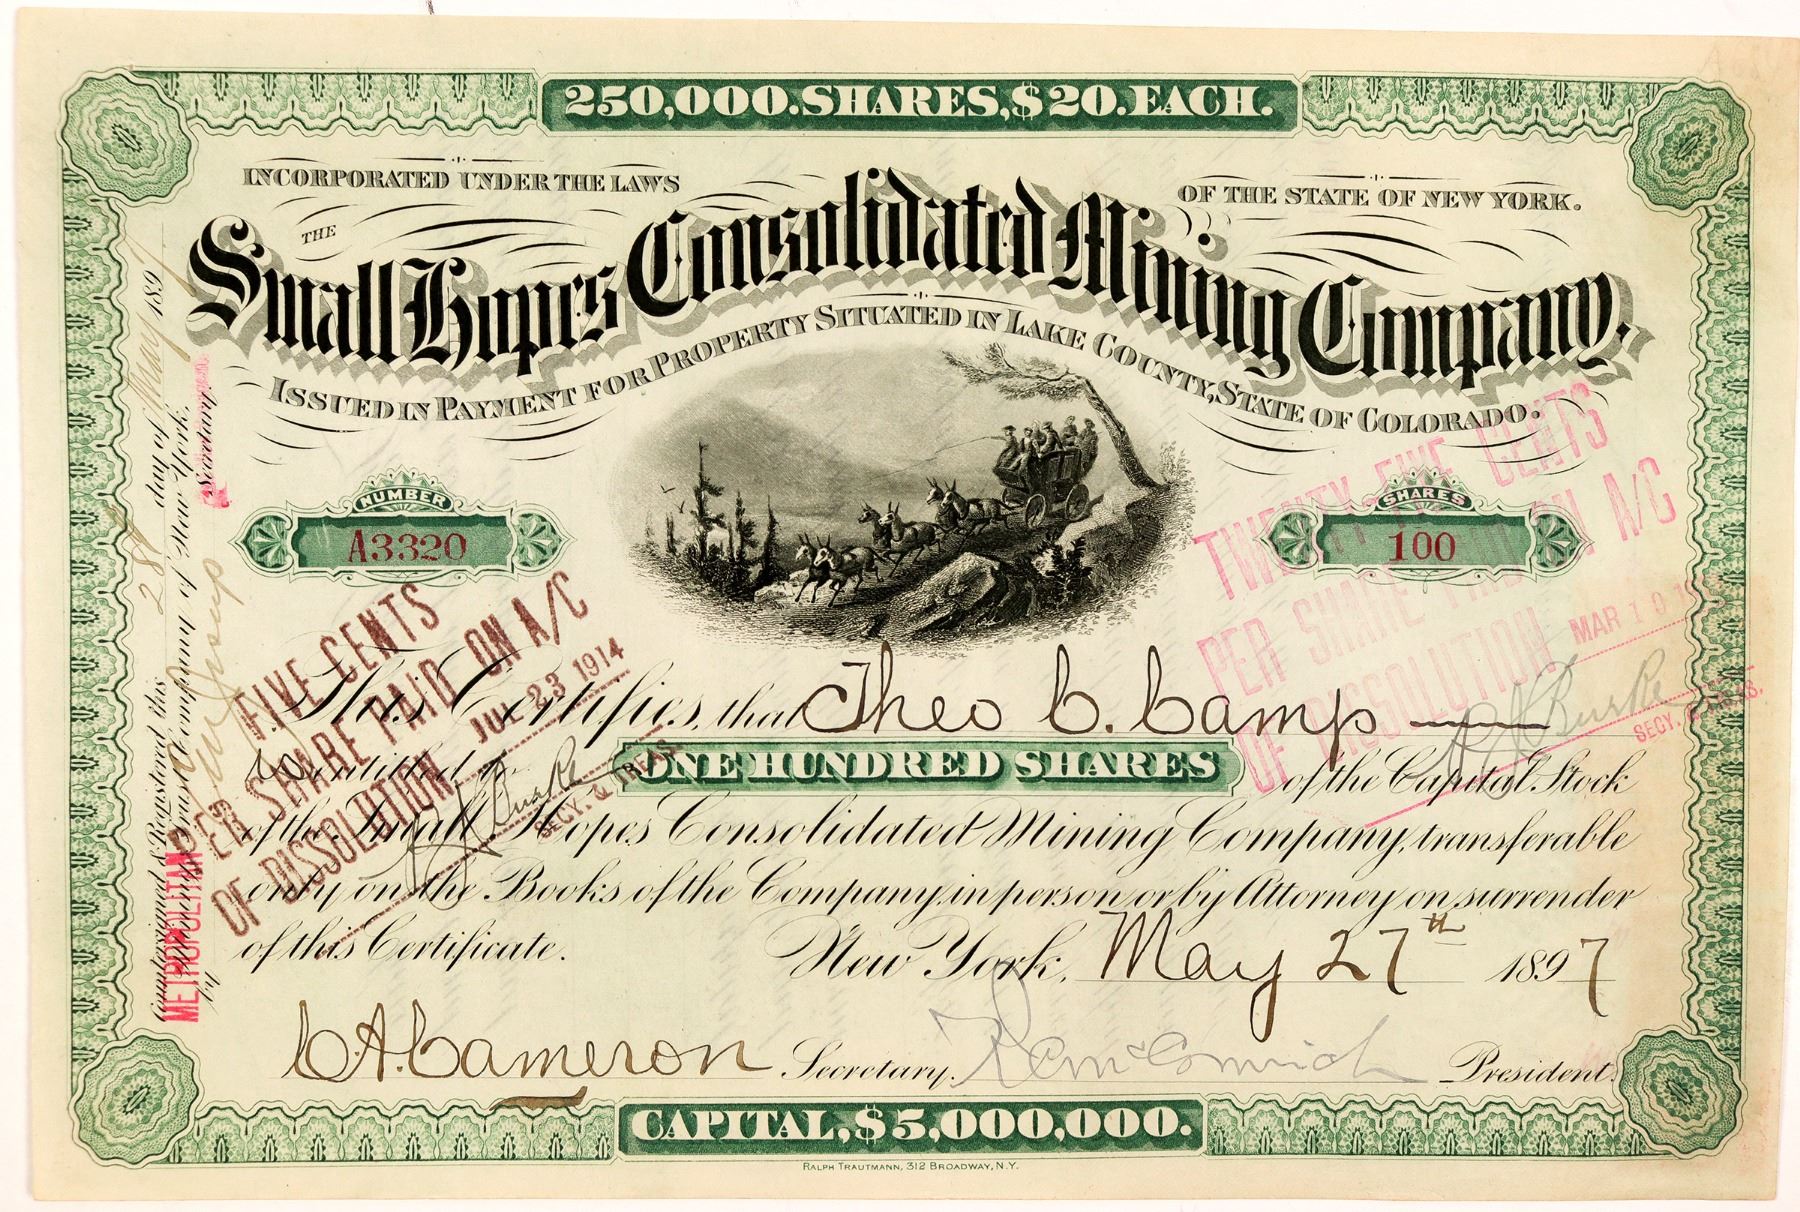 250,000. SHARES, $20. EACH.
INCORPORATED UNDER THE LAWS OF THE STATE OF NEW YORK.
THE
Small Hopes Consolidated Mining Company.
ISSUED IN PAYMENT FOR PROPERTY SITUATED IN LAKE COUNTY, STATE OF COLORADO.
NUMBER
A3320
SHARES
100
This Certifies, that Theo C. Camp
is entitled to ONE HUNDRED SHARES of the Capital Stock
of the Small Hopes Consolidated Mining Company, transferable
only on the Books of the Company, in person or by Attorney on surrender
of this Certificate. New York, May 27th 1897
C.A. Cameron Secretary. R.C. McCormick President.
CAPITAL, $5,000,000.
RALPH TRAUTMANN, 312 BROADWAY, N.Y.
Countersigned & Registered this 28th day of May 1897
METROPOLITAN Trust Company of New York.
by
Secretary.
FIVE CENTS
PER SHARE PAID ON A/C
OF DISSOLUTION
JUL 23 1914
R J Burke
SECY. & TREAS.
TWENTY-FIVE CENTS
PER SHARE PAID ON A/C
OF DISSOLUTION
MAR 10
R J Burke
SECY. & TREAS.